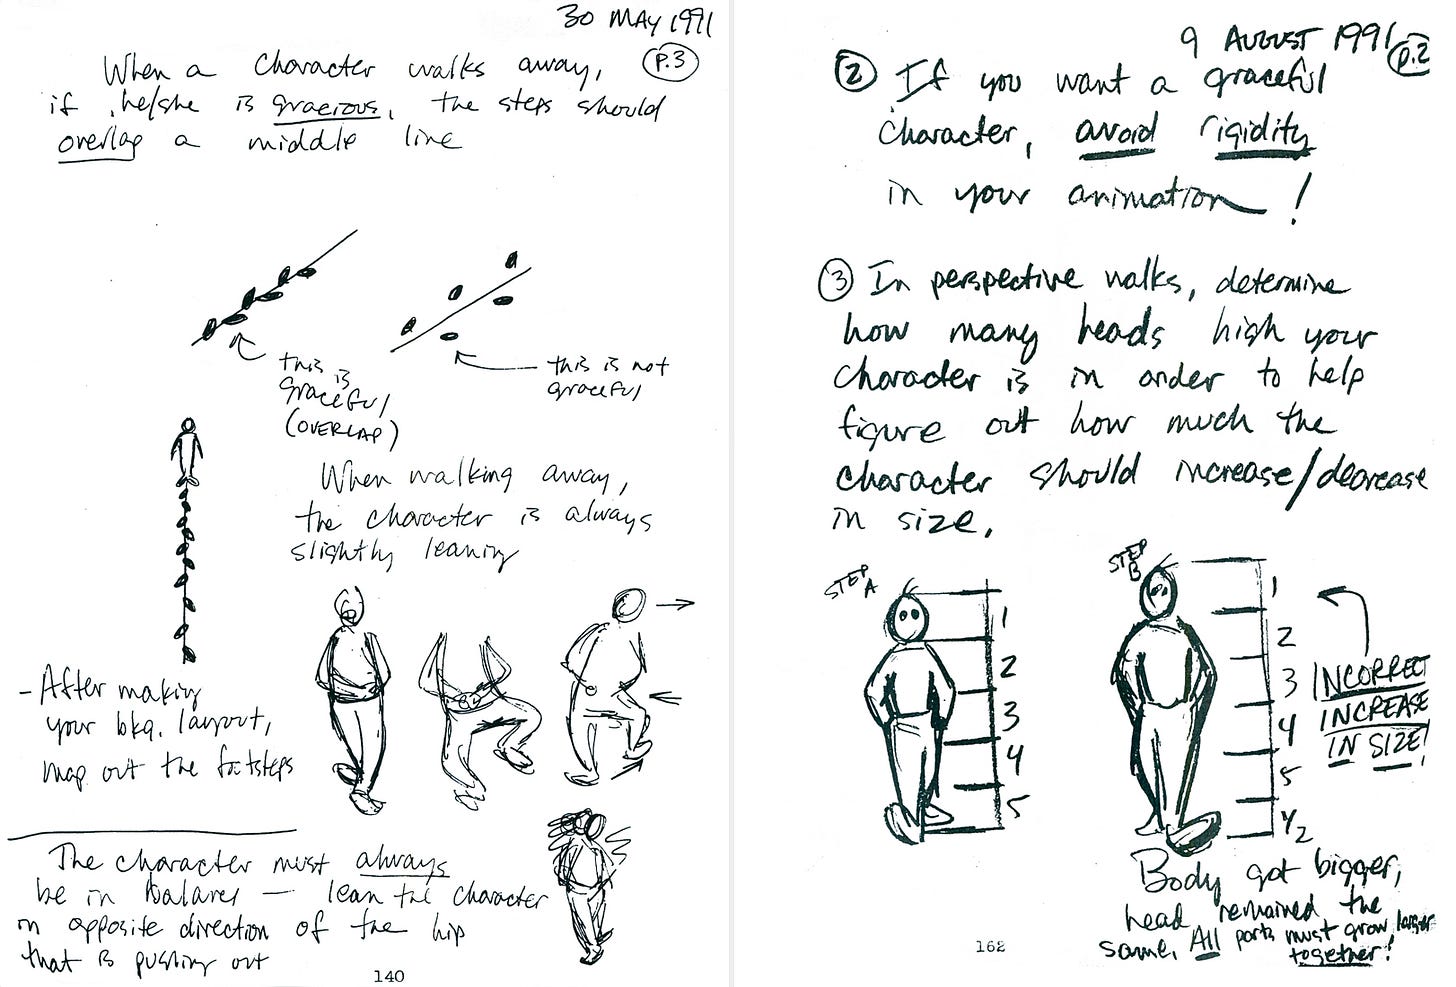 30 MAY 1991
p.3
When a character walks away,
if he/she is gracious, the steps should
overlap a middle line
this is
graceful
(OVERLAP)
this is not
graceful
When walking away,
the character is always
slightly leaning
- After making
your bkg. layout,
map out the footsteps
The character must always
be in balance — lean the character
in opposite direction of the hip
that is pushing out
140
9 AUGUST 1991
p.2
② If you want a graceful
character, avoid rigidity
in your animation!
③ In perspective walks, determine
how many heads high your
character is in order to help
figure out how much the
character should increase/decrease
in size.
STEP
A
1
2
3
4
5
STEP
B
1
2
3
4
5
1/2
INCORRECT
INCREASE
IN SIZE!
Body got bigger,
head remained the
same. All parts must grow larger
together!
162